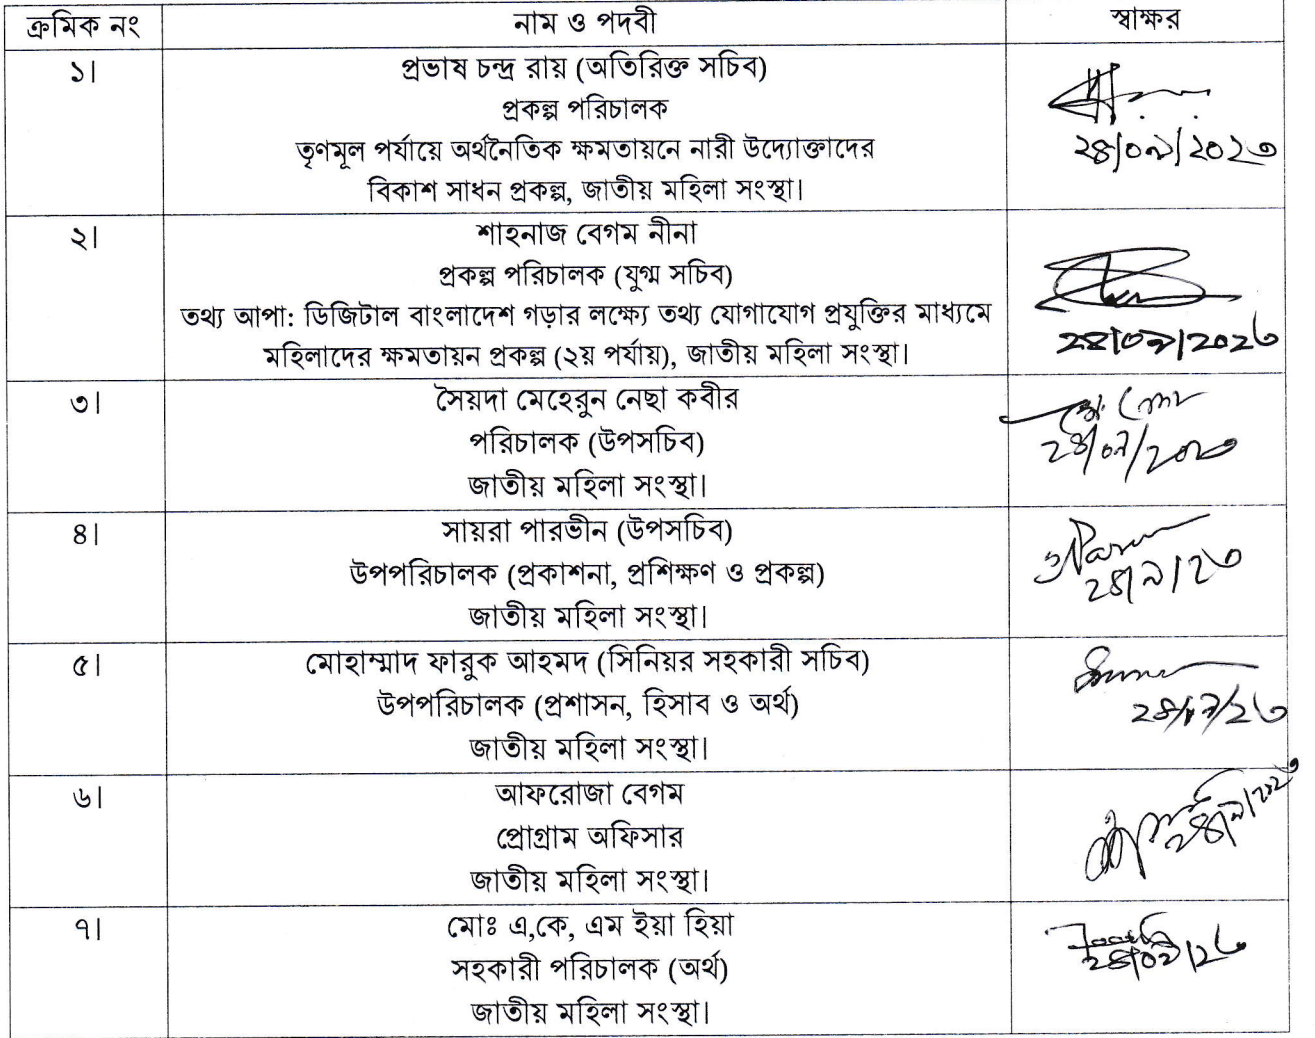 ক্রমিক নং নাম ও পদবী স্বাক্ষর
১। প্রভাষ চন্দ্র রায় (অতিরিক্ত সচিব)
প্রকল্প পরিচালক
তৃণমূল পর্যায়ে অর্থনৈতিক ক্ষমতায়নে নারী উদ্যোক্তাদের
বিকাশ সাধন প্রকল্প, জাতীয় মহিলা সংস্থা।
২৪/০৯/২০২৩
২। শাহনাজ বেগম নীনা
প্রকল্প পরিচালক (যুগ্ম সচিব)
তথ্য আপা: ডিজিটাল বাংলাদেশ গড়ার লক্ষ্যে তথ্য যোগাযোগ প্রযুক্তির মাধ্যমে
মহিলাদের ক্ষমতায়ন প্রকল্প (২য় পর্যায়), জাতীয় মহিলা সংস্থা।
২৪/০৯/২০২৩
৩। সৈয়দা মেহেরুন নেছা কবীর
পরিচালক (উপসচিব)
জাতীয় মহিলা সংস্থা।
২৪/০৯/২০২৩
৪। সায়রা পারভীন (উপসচিব)
উপপরিচালক (প্রকাশনা, প্রশিক্ষণ ও প্রকল্প)
জাতীয় মহিলা সংস্থা।
২৪/৯/২৩
৫। মোহাম্মাদ ফারুক আহমদ (সিনিয়র সহকারী সচিব)
উপপরিচালক (প্রশাসন, হিসাব ও অর্থ)
জাতীয় মহিলা সংস্থা।
২৪/০৯/২৩
৬। আফরোজা বেগম
প্রোগ্রাম অফিসার
জাতীয় মহিলা সংস্থা।
২৪/৯/২০২৩
৭। মোঃ এ,কে, এম ইয়া হিয়া
সহকারী পরিচালক (অর্থ)
জাতীয় মহিলা সংস্থা।
২৪/০৯/২৩